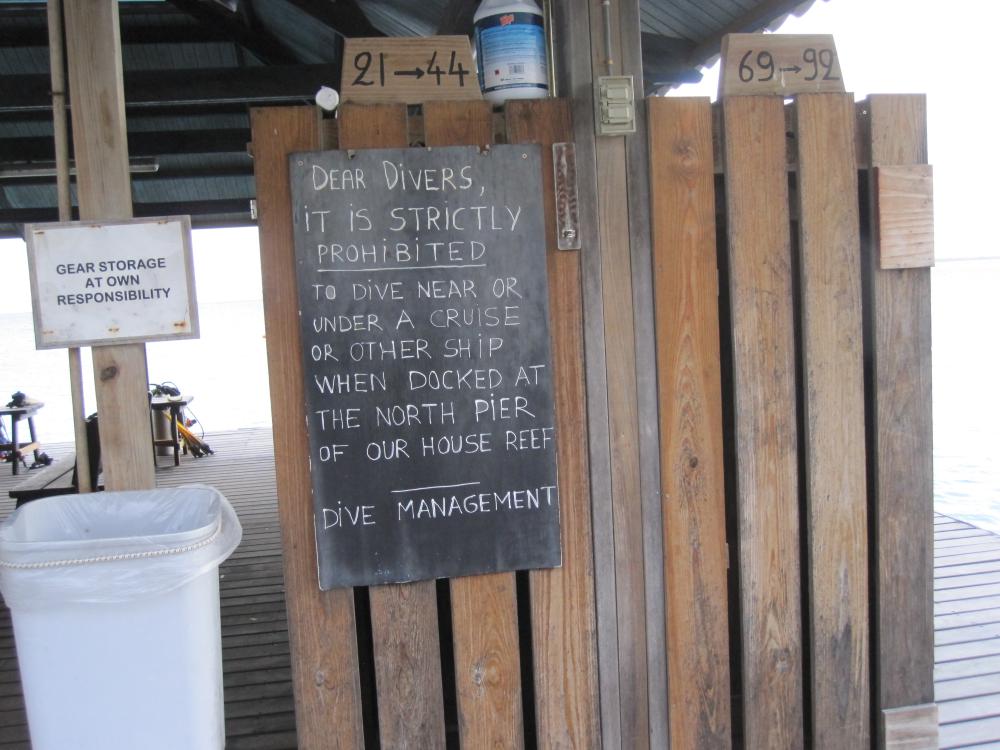 21→44
69→92
GEAR STORAGE
AT OWN
RESPONSIBILITY
DEAR DIVERS,
IT IS STRICTLY
PROHIBITED
TO DIVE NEAR OR
UNDER A CRUISE
OR OTHER SHIP
WHEN DOCKED AT
THE NORTH PIER
OF OUR HOUSE REEF
DIVE MANAGEMENT